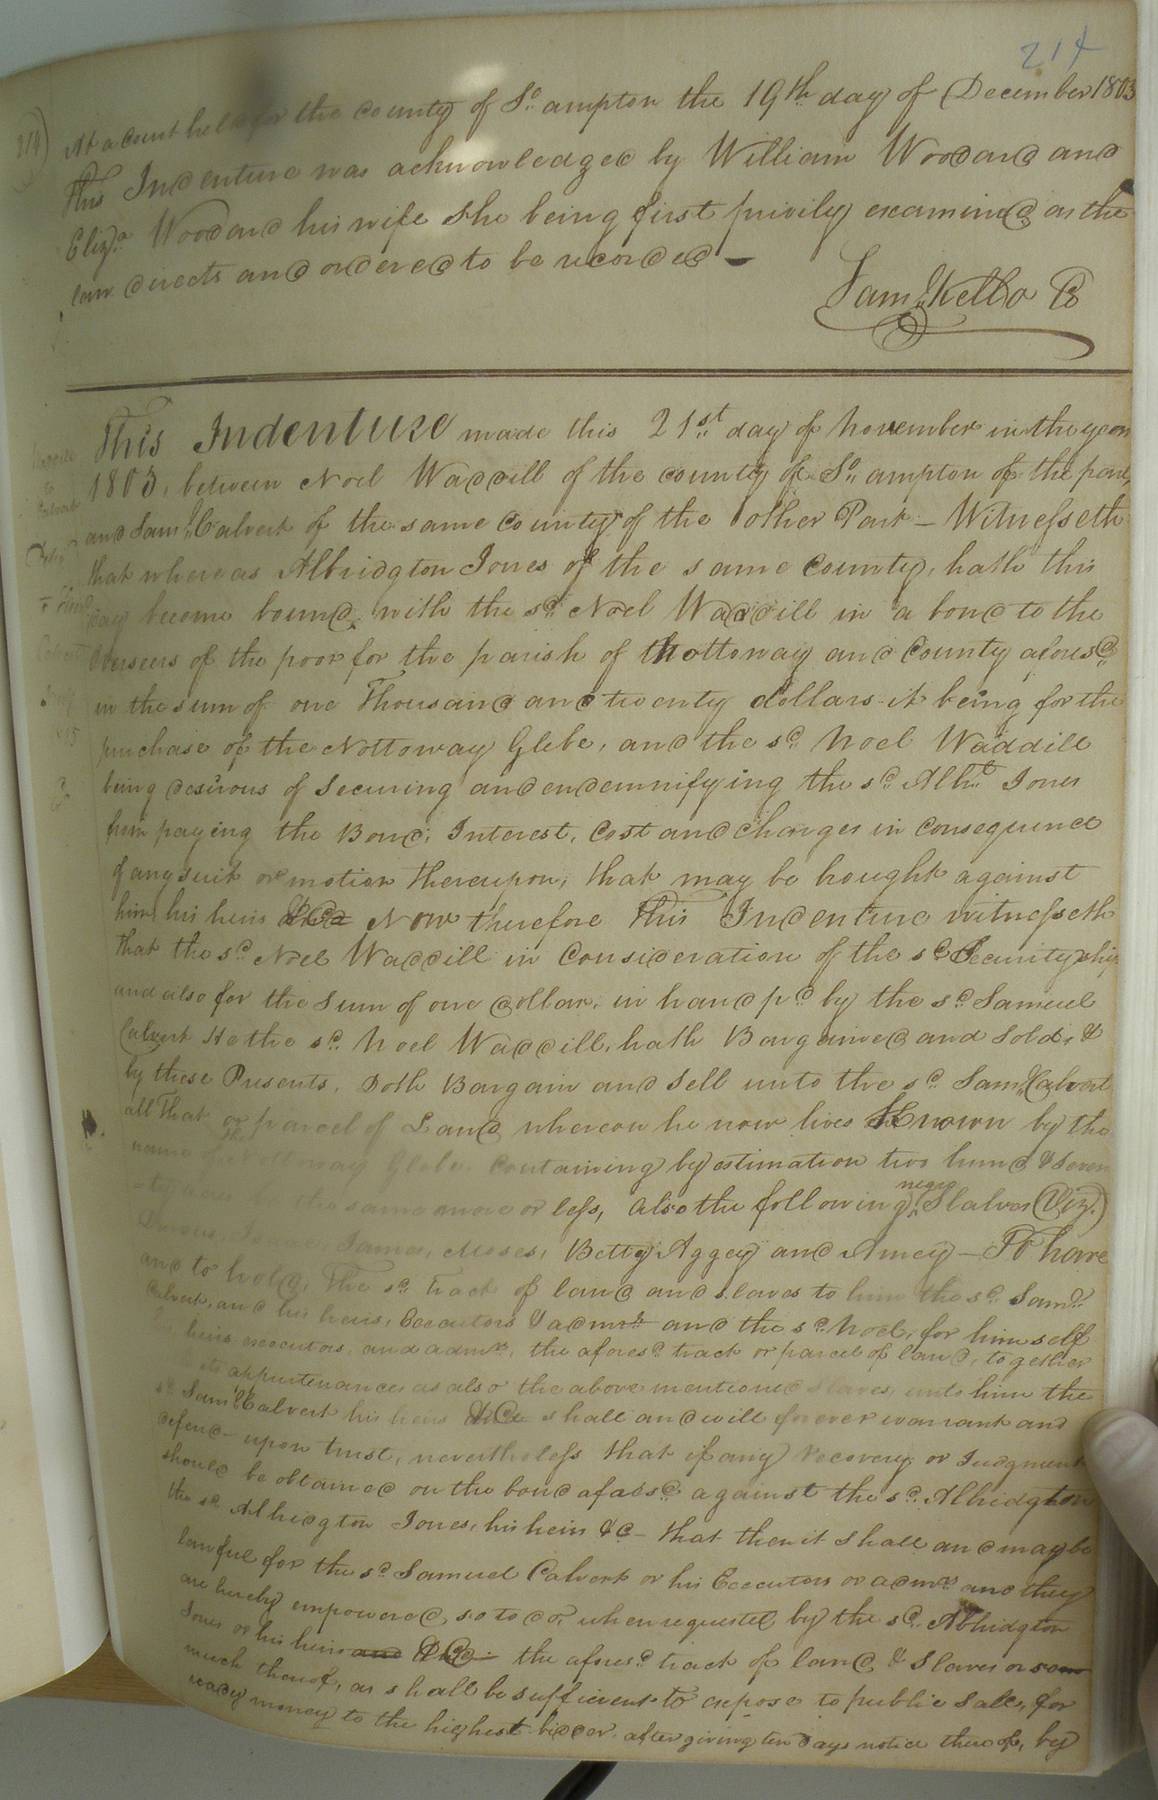 214
214)
At a Court held for the County of So.ampton the 19th day of December 1803
This Indenture was acknowledged by William Woodard and
Eliza. Woodard his wife she being first privily examined as the
law directs and ordered to be recorded —
Sam. Kello
This Indenture made this 21st day of November in the year
1803, between Noel Waddill of the county of So.ampton of the
and Saml. Calvert of the same County of the other Part — Witnesseth
that whereas Albridgton Jones of the same County, hath this
day become bound with the sd. Noel Waddill in a bond to the
Overseers of the poor for the parish of Nottoway and County aforesd.
in the sum of one Thousand and twenty dollars it being for the
purchase of the Nottoway Glebe, and the sd. Noel Waddill
being desirous of Securing and endemnifying the sd. Albr. Jones
from paying the Bond, Interest, Cost and charges in consequence
of any suit or motion thereupon, that may be bought against
him, his heirs &Ca Now therefore This Indenture witnesseth
that the sd. Noel Waddill in Consideration of the sd. Security ship
and also for the Sum of one dollar, in hand pd. by the sd. Samuel
Calvert He the sd. Noel Waddill, hath Bargained and Sold, &
by these Presents, Doth Bargain and Sell unto the sd. Saml. Calvert
all that or parcel of Land whereon he now lives Known by the
name of the Nottoway Glebe. Containing by estimation two hund. & seven
the same more or less, also the following negro Slalves (Viz.)
Isaac, James, Moses, Betty, Aggey and Amey — To have
and to hold, The sd. tract of land and slaves to him the sd. Saml.
Calvert, and his heirs, Executors & admrs. and the sd. Noel, for himself
heirs executors, and admrs. the aforesd. track or parcel of land, together
appurtenances as also the above mentioned Slaves, unto him the
sd. Saml. Calvert his heirs &Ca shall and will forever warrant and
defend — upon trust, nevertheless that if any Recovery or Judgment
should be obtained on the bond afoesd. against the sd. Albridgton
the sd. Albridgton Jones, his heirs &C — that then it shall and may be
lawful for the sd. Samuel Calvert or his Executors or admrs and they
are hereby empowered, so to do, when requested by the sd. Albridgton
Jones or his heirs and &Ca the aforesd. track of land, & Slaves or so
much thereof, as shall be sufficient to expose to public Sale, for
ready money to the highest bidder. after giving ten days notice thereof, by